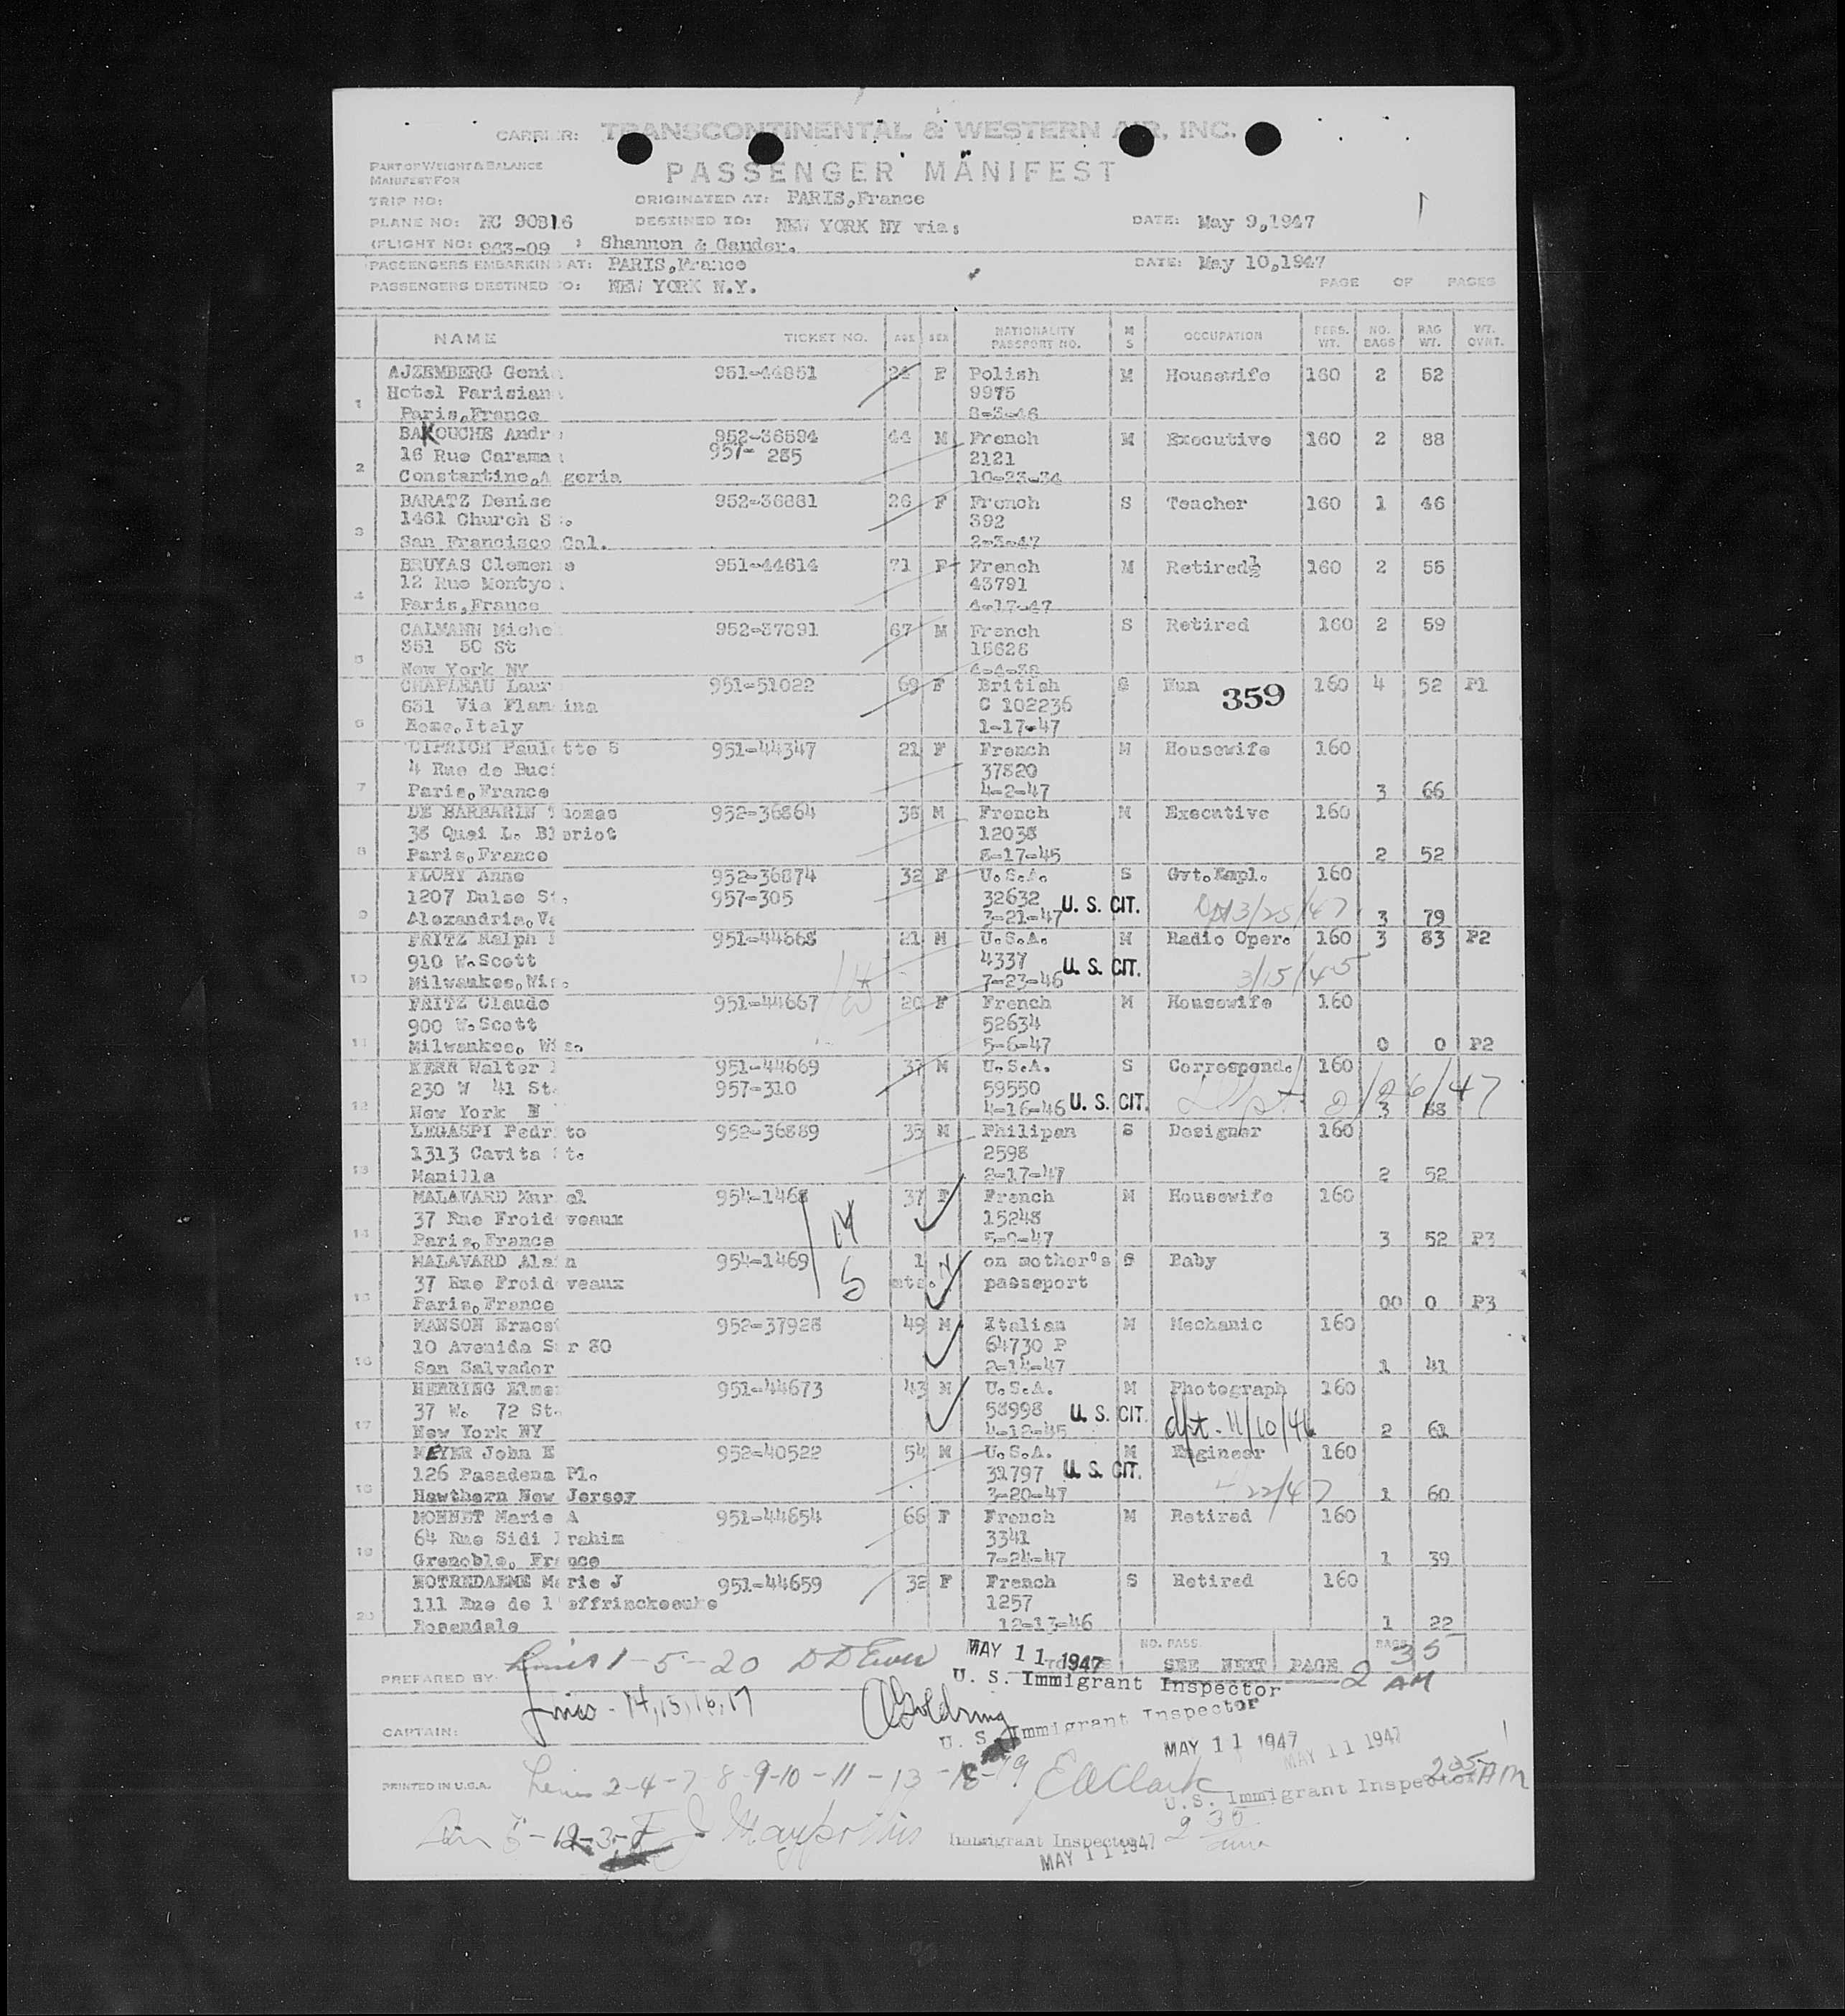 CARRIER: TRANSCONTINENTAL & WESTERN AIR, INC.
PART OF WEIGHT & BALANCE
MANIFEST FOR
PASSENGER MANIFEST
TRIP NO: ORIGINATED AT: PARIS,France
PLANE NO: NC 90816 DESTINED TO: NEW YORK NY via: DATE: May 9,1947
(FLIGHT NO: 963-09 ) Shannon & Gander.
PASSENGERS EMBARKING AT: PARIS,France DATE: May 10,1947
PASSENGERS DESTINED TO: NEW YORK N.Y. PAGE OF PAGES
NAME TICKET NO. AGE SEX NATIONALITY PASSPORT NO. M S OCCUPATION PERS. WT. NO. BAGS BAG WT. WT. OVRT.
AJZEMBERG Geni 951-44851 24 F Polish M Housewife 160 2 52
Hotel Parisian 9975
1 Paris,France 8-3-46
BAKOUCHE Andr 952-36594 44 M French M Executive 160 2 88
16 Rue Carama 957- 285 2121
2 Constantine,A geria 10-23-34
BARATZ Denise 952-36881 26 F French S Teacher 160 1 46
1461 Church S . 392
3 San Francisco Cal. 2-3-47
BRUYAS Clemen e 951-44614 71 F French M Retired 160 2 55
12 Rue Montyo 43791
4 Paris,France 4-17-47
CALMANN Miche 952-37891 67 M French S Retired 160 2 59
351 50 St 15628
5 New York NY 4-4-38
CHAPLEAU Laur 951-51022 69 F British S Nun 359 160 4 52 P1
631 Via Flam ina C 102236
6 Rome,Italy 1-17-47
CIPRICH Paul tte S 951-44347 21 F French M Housewife 160
4 Rue de Buci 37820
7 Paris,France 4-2-47 3 66
DE BARBARIN T homas 952-36864 38 M French M Executive 160
38 Quai L. Bl eriot 12038
8 Paris,France 8-17-45 2 52
FLORY Anne 952-36874 32 F U.S.A. S Gvt.Empl. 160
1207 Dulse St. 957-305 32632 U. S. CIT. 3/25/47
9 Alexandria,Va 3-21-47 3 79
FRITZ Ralph 951-44668 21 M U.S.A. M Radio Oper. 160 3 83 P2
910 W.Scott 4337 U. S. CIT. 3/15/45
10 Milwaukee,Wis. 7-23-46
FRITZ Claude 951-44667 20 F French M Housewife 160
900 W.Scott 52634
11 Milwaukee, Wis. 5-6-47 0 0 P2
KERR Walter 951-44669 37 M U.S.A. S Correspond. 160
230 W 41 St. 957-310 59550 Dept. 2/26/47
12 New York N 4-16-46 U. S. CIT. 3 88
LEGASPI Pedr to 952-36889 35 M Philipan S Designer 160
1313 Cavita t. 2598
13 Manilla 2-17-47 2 52
MALAVARD Mur el 954-1468 37 F French M Housewife 160
37 Rue Froid veaux 14 15248
14 Paris,France 47 3 52 P3
MALAVARD Ala n 954-1469 1 M on mother's S Baby
37 Rue Froid veaux 5 mts. passeport
15 Paris,France 00 0 P3
MANSON Ernest 952-37928 49 M Italian M Mechanic 160
10 Avenida S r 80 64730 P
16 San Salvador 2-14-47 1 41
HERRING Elme 951-44673 43 M U.S.A. M Photograph 160
37 W. 72 St. 58998 U. S. CIT. dpt - 11/10/46
17 New York NY 4-12-45 2 61
MEYER John E 952-40522 54 M U.S.A. M Engineer 160
126 Pasadena Pl. 31797 U. S. CIT. 22/47
18 Hawthorn New Jersey 3-20-47 1 60
MONNET Marie A 951-44654 66 F French M Retired 160
64 Rue Sidi rahim 3341
19 Grenoble, Fr nce 7-24-47 1 39
NOTREDAEME Ma rie J 951-44659 32 F French S Retired 160
111 Rue de l effrinckoeuke 1257
20 Rosendale 12-17-46 1 22
Lines 1 - 5 - 20 MAY 11 1947 NO. PASS. 35
PREPARED BY: SEE NEXT PAGE 2 AM
U. S. Immigrant Inspector
Lines - 14, 15, 16, 17 AGoldring
CAPTAIN: U. S. Immigrant Inspector
MAY 11 1947 MAY 11 1947
PRINTED IN U.S.A. Lines 2-4-7-8-9-10-11-13-18-19 EAClark 2 05 AM
U. S. Immigrant Inspector
Immigrant Inspector 2 30
MAY 11 1947